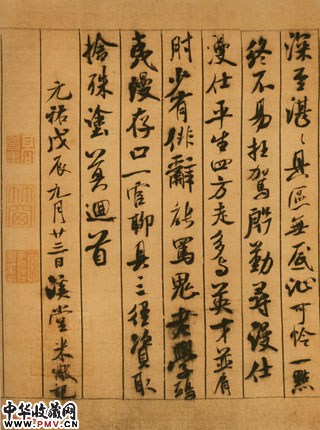 深至湛〻具區無底沚可憐一點
終不易枉駕殷勤尋漫仕
漫仕平生四方走多与英才並肩
肘少有俳辭能罵鬼老學鴟
夷漫存口一官聊具三徑資取
捨殊塗莫迴首
元祐戊辰九月廿三日溪堂米黻記
中华收藏网
www.PMV.CN